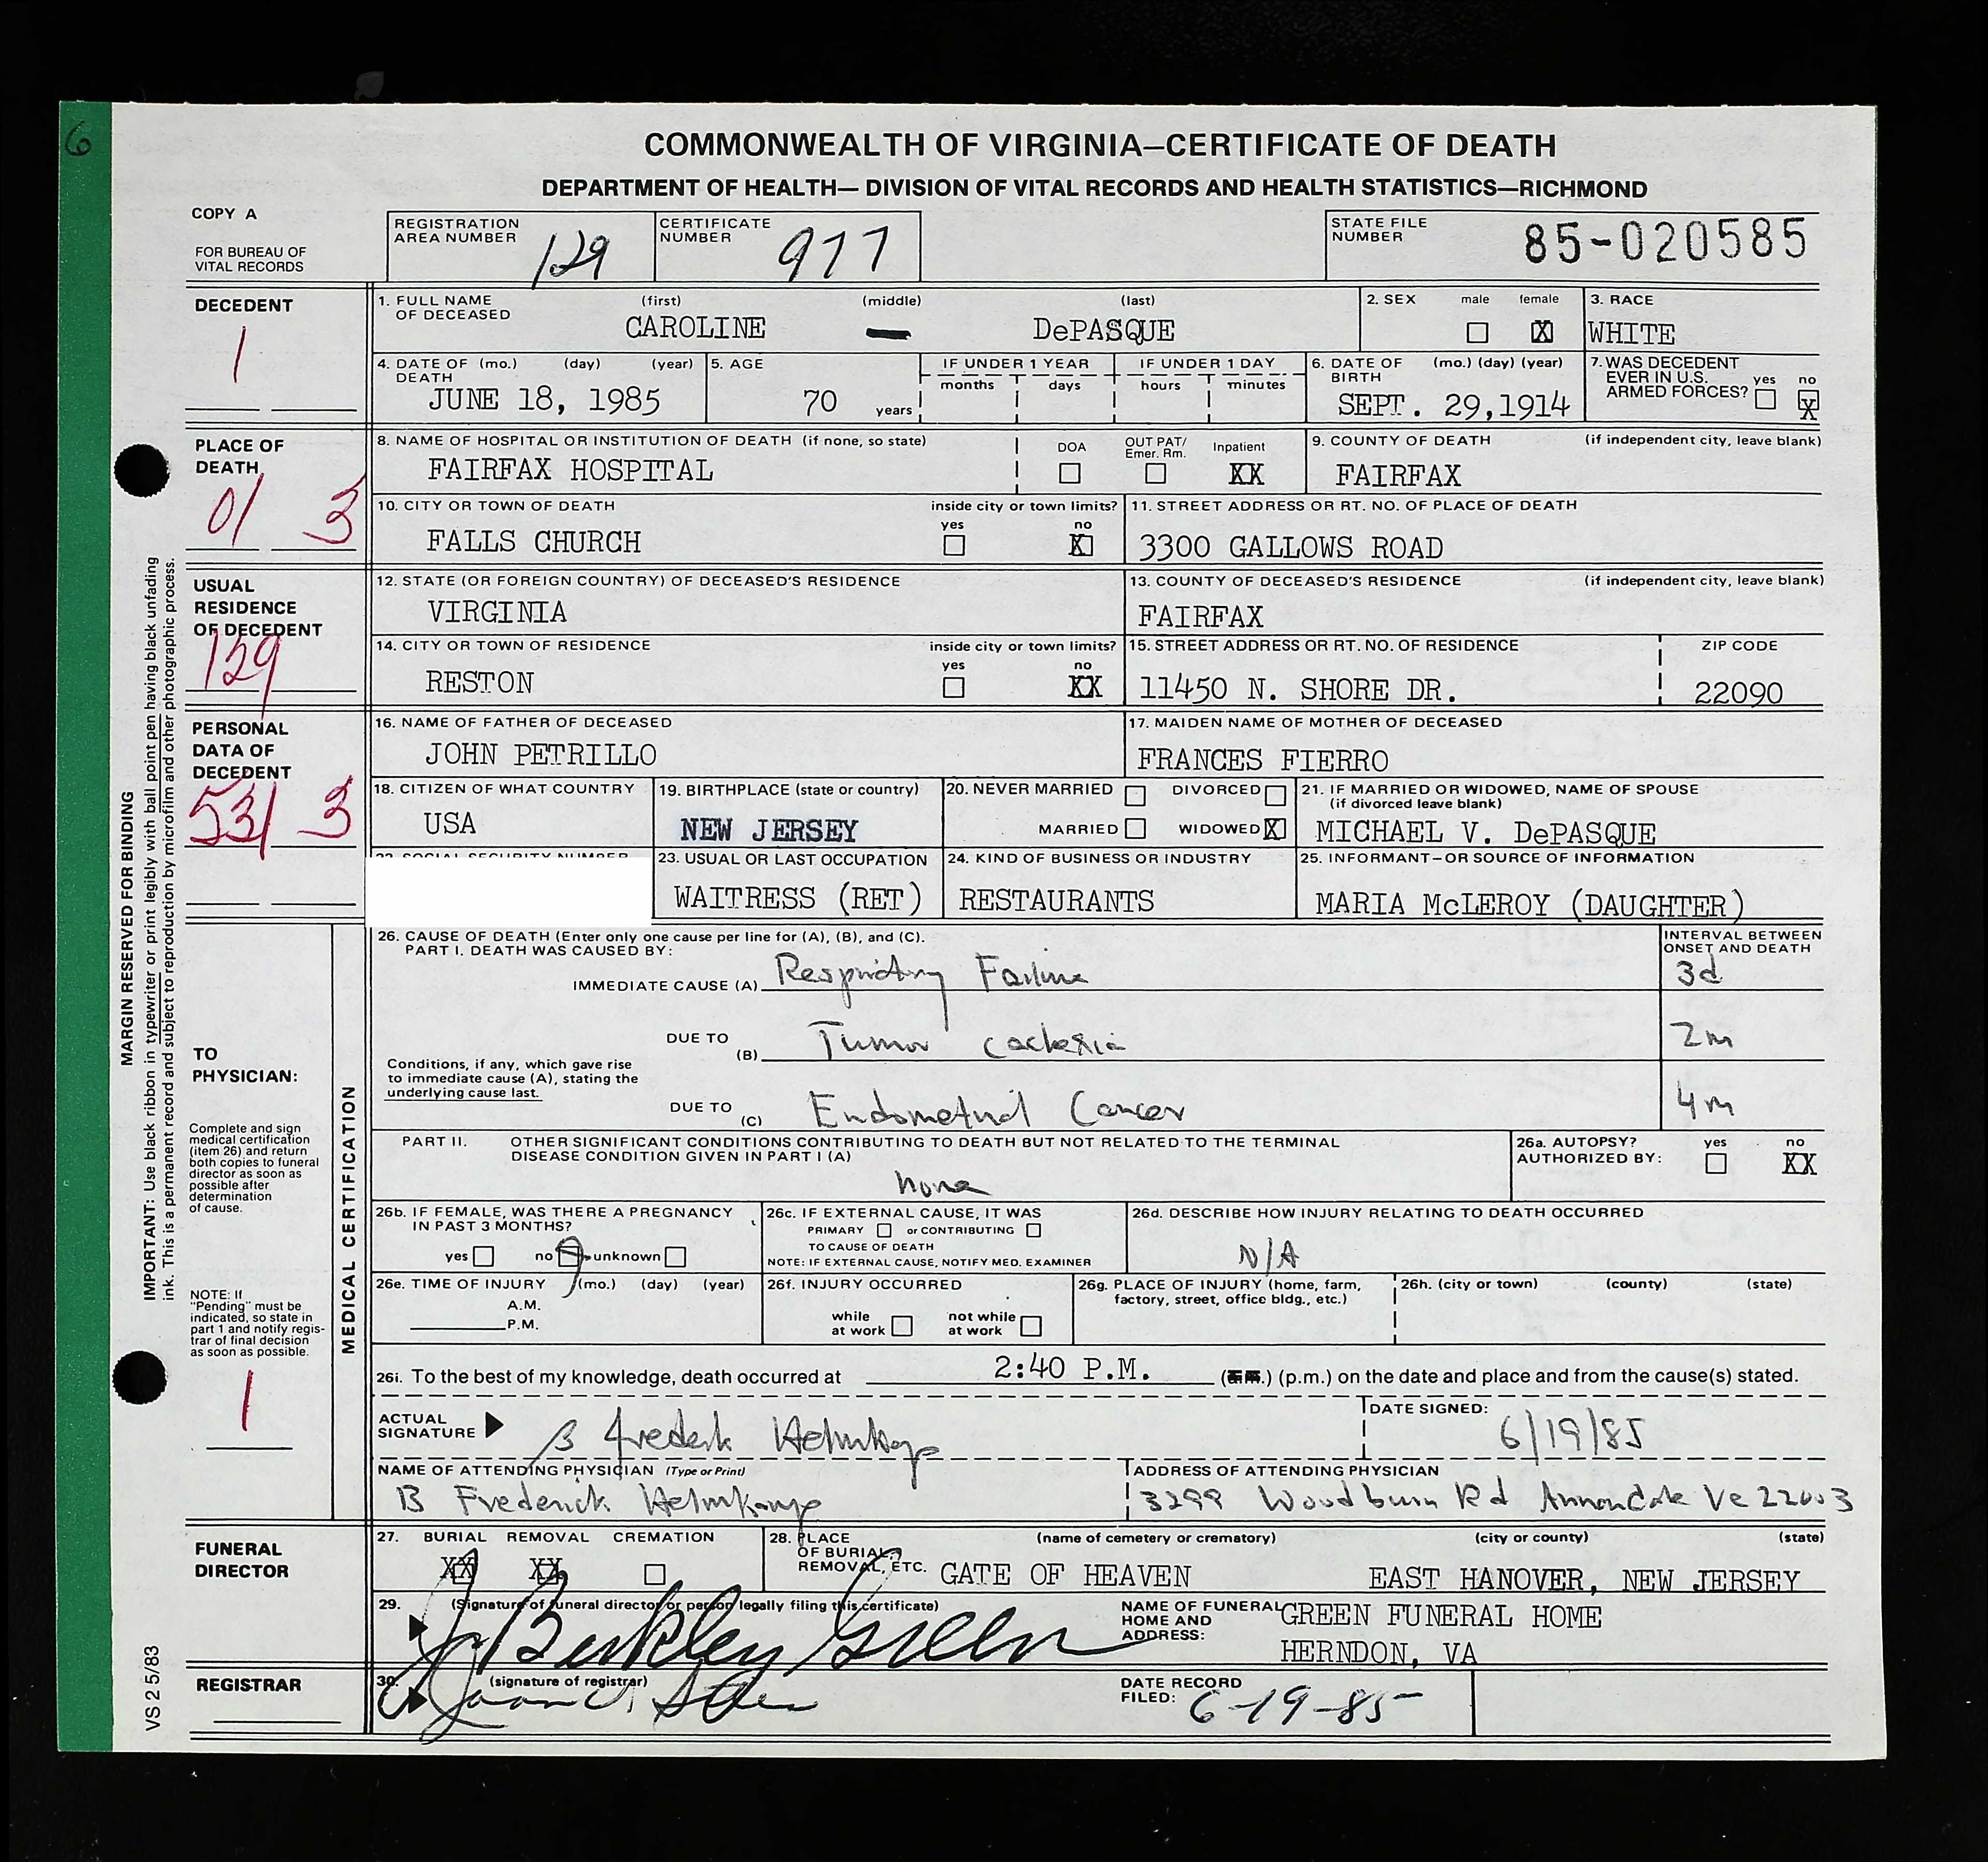 6
COMMONWEALTH OF VIRGINIA—CERTIFICATE OF DEATH
DEPARTMENT OF HEALTH— DIVISION OF VITAL RECORDS AND HEALTH STATISTICS—RICHMOND
COPY A
FOR BUREAU OF
VITAL RECORDS
REGISTRATION
AREA NUMBER 129
CERTIFICATE
NUMBER 977
STATE FILE
NUMBER 85-020585
DECEDENT
1
1. FULL NAME (first) (middle) (last)
OF DECEASED
CAROLINE — DePASQUE
2. SEX male female
X
3. RACE
WHITE
4. DATE OF (mo.) (day) (year)
DEATH
JUNE 18, 1985
5. AGE
70 years
IF UNDER 1 YEAR
months days
IF UNDER 1 DAY
hours minutes
6. DATE OF (mo.) (day) (year)
BIRTH
SEPT. 29,1914
7. WAS DECEDENT
EVER IN U.S. yes no
ARMED FORCES? X
PLACE OF
DEATH
01 3
8. NAME OF HOSPITAL OR INSTITUTION OF DEATH (if none, so state)
FAIRFAX HOSPITAL
DOA
OUT PAT/
Emer. Rm.
Inpatient
XX
9. COUNTY OF DEATH (if independent city, leave blank)
FAIRFAX
10. CITY OR TOWN OF DEATH inside city or town limits?
yes no
FALLS CHURCH X
11. STREET ADDRESS OR RT. NO. OF PLACE OF DEATH
3300 GALLOWS ROAD
USUAL
RESIDENCE
OF DECEDENT
129
12. STATE (OR FOREIGN COUNTRY) OF DECEASED'S RESIDENCE
VIRGINIA
13. COUNTY OF DECEASED'S RESIDENCE (if independent city, leave blank)
FAIRFAX
14. CITY OR TOWN OF RESIDENCE inside city or town limits?
yes no
RESTON XX
15. STREET ADDRESS OR RT. NO. OF RESIDENCE ZIP CODE
11450 N. SHORE DR. 22090
PERSONAL
DATA OF
DECEDENT
531 3
16. NAME OF FATHER OF DECEASED
JOHN PETRILLO
17. MAIDEN NAME OF MOTHER OF DECEASED
FRANCES FIERRO
18. CITIZEN OF WHAT COUNTRY
USA
19. BIRTHPLACE (state or country)
NEW JERSEY
20. NEVER MARRIED DIVORCED
MARRIED WIDOWED X
21. IF MARRIED OR WIDOWED, NAME OF SPOUSE
(if divorced leave blank)
MICHAEL V. DePASQUE
22. SOCIAL SECURITY NUMBER
23. USUAL OR LAST OCCUPATION
WAITRESS (RET)
24. KIND OF BUSINESS OR INDUSTRY
RESTAURANTS
25. INFORMANT—OR SOURCE OF INFORMATION
MARIA McLEROY (DAUGHTER)
MARGIN RESERVED FOR BINDING
IMPORTANT: Use black ribbon in typewriter or print legibly with ball point pen having black unfading
ink. This is a permanent record and subject to reproduction by microfilm and other photographic process.
VS 2 5/83
TO
PHYSICIAN:
Complete and sign
medical certification
(item 26) and return
both copies to funeral
director as soon as
possible after
determination
of cause.
NOTE: If
"Pending" must be
indicated, so state in
part 1 and notify regis-
trar of final decision
as soon as possible.
1
MEDICAL CERTIFICATION
26. CAUSE OF DEATH (Enter only one cause per line for (A), (B), and (C).
PART I. DEATH WAS CAUSED BY:
INTERVAL BETWEEN
ONSET AND DEATH
IMMEDIATE CAUSE (A) Respiratory Failure 3d
DUE TO
(B) Tumor cachexia 2m
Conditions, if any, which gave rise
to immediate cause (A), stating the
underlying cause last.
DUE TO
(C) Endometrial Cancer 4m
PART II. OTHER SIGNIFICANT CONDITIONS CONTRIBUTING TO DEATH BUT NOT RELATED TO THE TERMINAL
DISEASE CONDITION GIVEN IN PART I (A)
none
26a. AUTOPSY? yes no
AUTHORIZED BY: XX
26b. IF FEMALE, WAS THERE A PREGNANCY
IN PAST 3 MONTHS?
yes no unknown
26c. IF EXTERNAL CAUSE, IT WAS
PRIMARY or CONTRIBUTING
TO CAUSE OF DEATH
NOTE: IF EXTERNAL CAUSE, NOTIFY MED. EXAMINER
26d. DESCRIBE HOW INJURY RELATING TO DEATH OCCURRED
N/A
26e. TIME OF INJURY (mo.) (day) (year)
A.M.
P.M.
26f. INJURY OCCURRED
while not while
at work at work
26g. PLACE OF INJURY (home, farm,
factory, street, office bldg., etc.)
26h. (city or town) (county) (state)
26i. To the best of my knowledge, death occurred at 2:40 P.M. (a.m.) (p.m.) on the date and place and from the cause(s) stated.
ACTUAL
SIGNATURE B Frederick Helmkamp
DATE SIGNED:
6/19/85
NAME OF ATTENDING PHYSICIAN (Type or Print)
B Frederick Helmkamp
ADDRESS OF ATTENDING PHYSICIAN
3299 Woodburn Rd Annandale Va 22003
FUNERAL
DIRECTOR
27. BURIAL REMOVAL CREMATION
XX XX
28. PLACE (name of cemetery or crematory) (city or county) (state)
OF BURIAL,
REMOVAL, ETC. GATE OF HEAVEN EAST HANOVER, NEW JERSEY
29. (Signature of funeral director or person legally filing this certificate)
J Berkley Green
NAME OF FUNERAL
HOME AND
ADDRESS:
GREEN FUNERAL HOME
HERNDON, VA
REGISTRAR
30. (signature of registrar)
DATE RECORD
FILED: 6-19-85